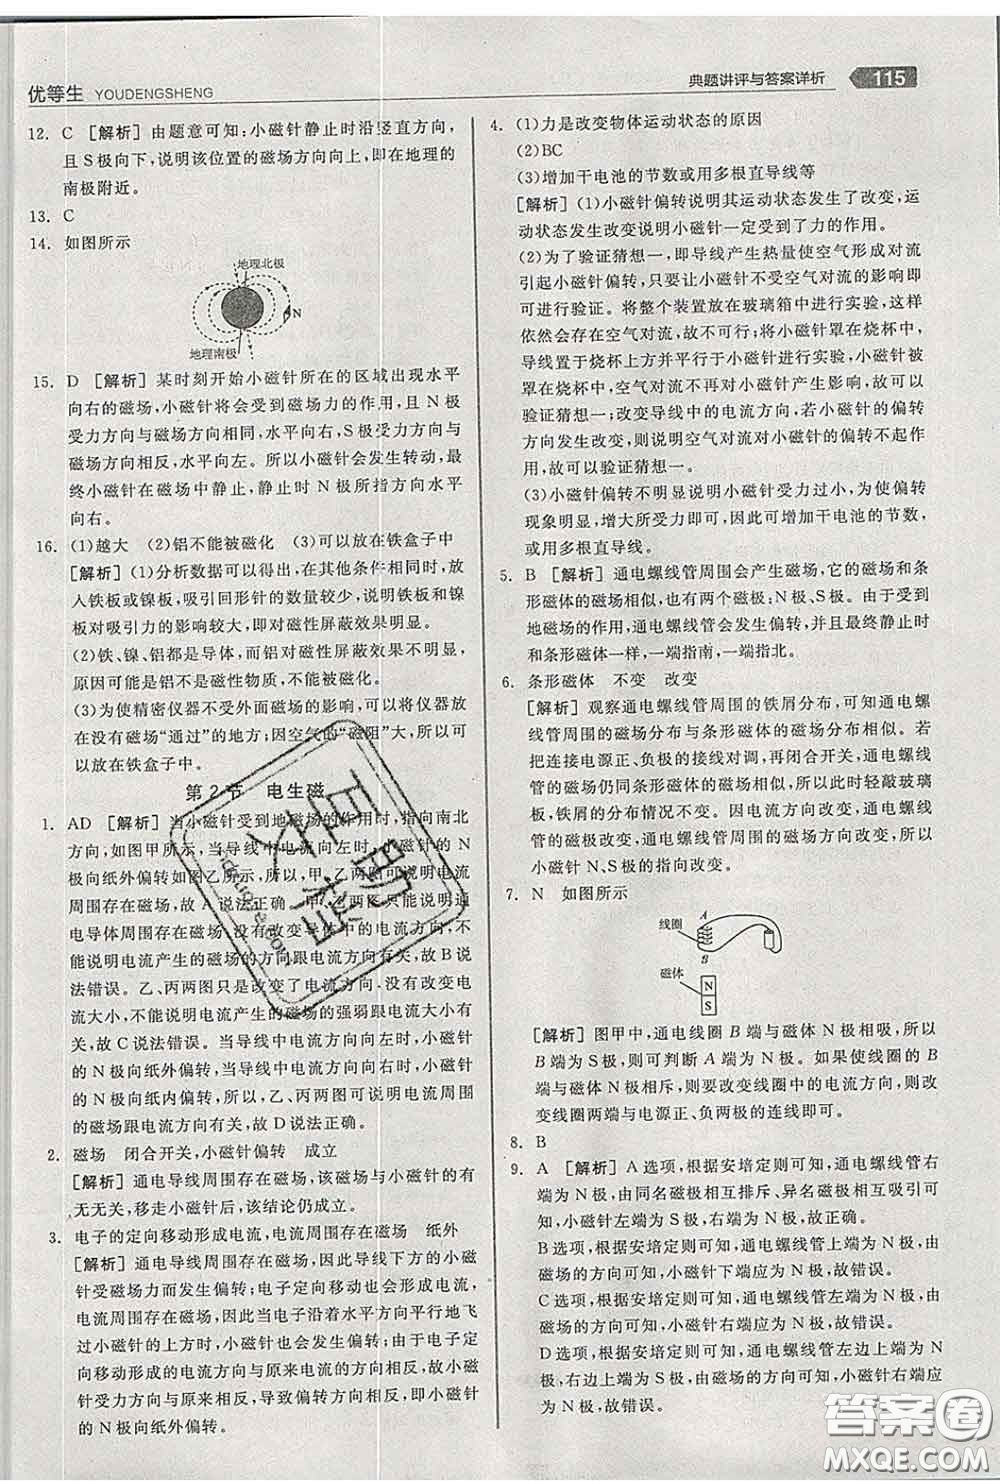 优等生 YOUDENGSHENG
典题讲评与答案详析 115
12. C [解析] 由题意可知:小磁针静止时沿竖直方向,
且S极向下,说明该位置的磁场方向向上,即在地理的
南极附近。
13. C
14. 如图所示
地理北极
N
地理南极
15. D [解析] 某时刻开始小磁针所在的区域出现水平
向右的磁场,小磁针将会受到磁场力的作用,且N极
受力方向与磁场方向相同,水平向右,S极受力方向与
磁场方向相反,水平向左。所以小磁针会发生转动,最
终小磁针在磁场中静止,静止时N极所指方向水平
向右。
16. (1)越大 (2)铝不能被磁化 (3)可以放在铁盒子中
[解析] (1)分析数据可以得出,在其他条件相同时,放
入铁板或镍板,吸引回形针的数量较少,说明铁板和镍
板对吸引力的影响较大,即对磁性屏蔽效果明显。
(2)铁、镍、铝都是导体,而铝对磁性屏蔽效果不明显,
原因可能是铝不是磁性物质,不能被磁化。
(3)为使精密仪器不受外面磁场的影响,可以将仪器放
在没有磁场“通过”的地方;因空气的“磁阻”大,所以可
以放在铁盒子中。
第2节 电生磁
1. AD [解析] 当小磁针受到地磁场的作用时,指向南北
方向,如图甲所示,当导线中电流向左时,小磁针的N
极向纸外偏转如图乙所示,所以,甲、乙两图可以说明通
电导体周围存在磁场,故A说法正确。甲、乙两图只能说明通
电导体周围存在磁场,没有改变导体中的电流方向,不
能说明电流产生的磁场的方向跟电流方向有关,故B说
法错误。乙、丙两图只是改变了电流方向,没改变电流
大小,不能说明电流产生的磁场的强弱跟电流大小有
关,故C说法错误。当导线中电流向左时,小磁针的
N极向纸外偏转;当导线中电流向右时,小磁针的
N极向纸内偏转,所以,乙、丙两图可以说明电流周围
的磁场跟电流方向有关,故D说法正确。
2. 磁场 闭合开关,小磁针偏转 成立
[解析] 通电导线周围存在磁场,该磁场与小磁针的
有无无关,移走小磁针后,该结论仍成立。
3. 电子的定向移动形成电流,电流周围存在磁场 纸外
[解析] 通电导线周围存在磁场,因此导线下方的小磁
针受磁场力而发生偏转;电子定向移动也会形成电流,
电流周围存在磁场,因此当电子沿着水平方向平行地飞
过小磁针的上方时,小磁针也会发生偏转;由于电子定
向移动形成的电流方向与原来电流的方向相反,则小磁
针受力方向与原来相反,导致偏转方向相反,即小磁针
的N极向纸外偏转。
4. (1)力是改变物体运动状态的原因
(2)BC
(3)增加干电池的节数或用多根直导线等
[解析] (1)小磁针偏转说明其运动状态发生了改变,运
动状态发生改变说明小磁针一定受到了力的作用。
(2)为了验证猜想一,即导线产生热量使空气形成对流
引起小磁针偏转,只要让小磁针不受空气对流的影响即
可进行验证。将整个装置放在玻璃箱中进行实验,这样
依然会存在空气对流,故不可行;将小磁针罩在烧杯中,
导线置于烧杯上方并平行于小磁针进行实验,因小磁针
在烧杯中,空气对流不再对小磁针产生影响,故可以
验证猜想一;改变导线中的电流方向,若小磁针的偏转
方向发生改变,则说明空气对流对小磁针的偏转不起
作用,由此可以验证猜想一。
(3)小磁针偏转不明显说明小磁针受力过小,为使偏转
现象明显,增大所受力即可,因此可增加干电池的节数,
或用多根直导线。
5. B [解析] 通电螺线管周围会产生磁场,它的磁场和条
形磁体的磁场相似,也有两个磁极:N极、S极。由于受到
地磁场的作用,通电螺线管会发生偏转,并且最终静止时
和条形磁体一样,一端指南,一端指北。
6. 条形磁体 不变 改变
[解析] 观察通电螺线管周围的铁屑分布,可知通电螺
线管周围的磁场分布与条形磁体的磁场分布相似。若
把连接电源正、负极的接线对换,再闭合开关,通电螺线
管的磁场仍同条形磁体的磁场相似,所以此时轻敲玻璃
板,铁屑的分布情况不变。因电流方向改变,通电螺线
管的磁极改变,通电螺线管周围的磁场方向改变,所以
小磁针N、S极的指向改变。
7. N 如图所示
线圈
A
B
磁体
N
S
[解析] 图甲中,通电线圈B端与磁体N极相吸,所以
B端为S极,则可判断A端为N极。如果使线圈的B
端与磁体N极相斥,则要改变线圈中的电流方向,则改
变线圈两端与电源正、负两极的连线即可。
8. B
9. A [解析] A选项,根据安培定则可知,通电螺线管右
端为N极,由同名磁极相互排斥、异名磁极相互吸引可
知,小磁针左端为S极,右端为N极,故正确。
B选项,根据安培定则可知,通电螺线管上端为N极,
由磁场的方向可知,小磁针下端应为N极,故错误。
C选项,根据安培定则可知,通电螺线管右端为N极,
由磁场的方向可知,小磁针右端应为N极,故错误。
D选项,根据安培定则可知,通电螺线管左边上端为N
极,右边上端为S极,由磁场的方向可知,小磁针右端应
为N极,故错误。
答案圈
MXQE.COM